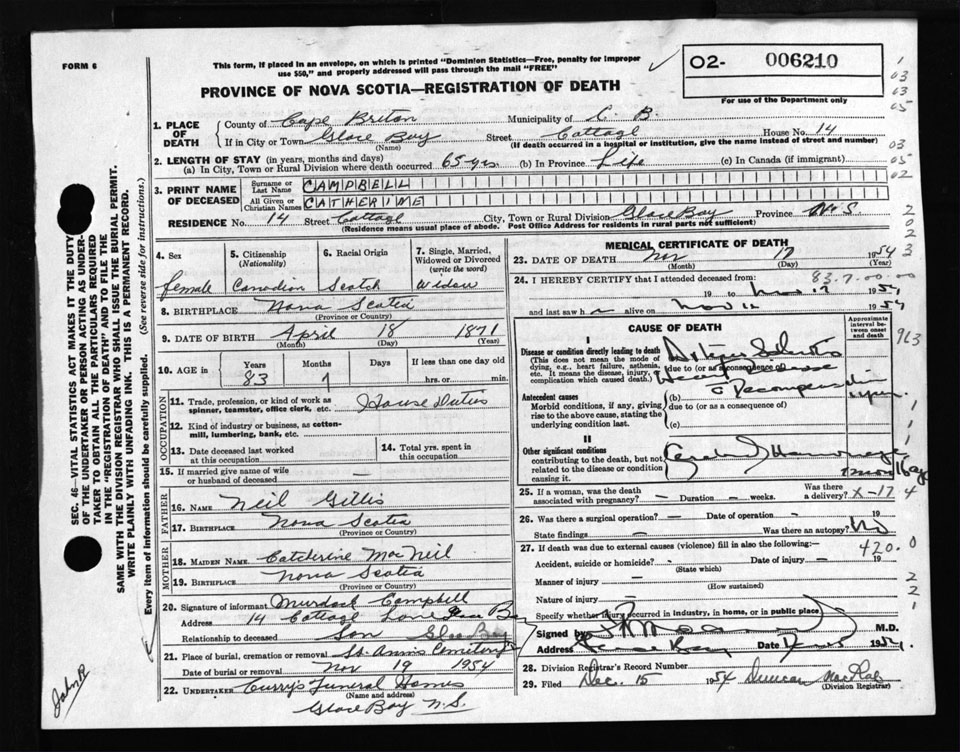 FORM 6
This form, if placed in an envelope, on which is printed "Dominion Statistics—Free, penalty for improper
use $50," and properly addressed will pass through the mail "FREE"
O2- 006210
For use of the Department only
PROVINCE OF NOVA SCOTIA—REGISTRATION OF DEATH
1. PLACE OF DEATH
County of Cape Breton Municipality of C. B.
If in City or Town Glace Bay Street Cottage House No. 14
(Name) (If death occurred in a hospital or institution, give the name instead of street and number)
2. LENGTH OF STAY (in years, months and days)
(a) In City, Town or Rural Division where death occurred 65 yrs. (b) In Province Life (c) In Canada (if immigrant)
3. PRINT NAME OF DECEASED
Surname or Last Name CAMPBELL
All Given or Christian Names CATHERINE
RESIDENCE No. 14 Street Cottage City, Town or Rural Division Glace Bay Province N. S.
(Residence means usual place of abode. Post Office Address for residents in rural parts not sufficient)
4. Sex
female
5. Citizenship
(Nationality)
Canadian
6. Racial Origin
Scotch
7. Single, Married, Widowed or Divorced
(write the word)
Widow
8. BIRTHPLACE Nova Scotia
(Province or Country)
9. DATE OF BIRTH April 18 1871
(Month) (Day) (Year)
10. AGE in Years Months Days If less than one day old
83 7 hrs. or min.
OCCUPATION
11. Trade, profession, or kind of work as
spinner, teamster, office clerk, etc. House Duties
12. Kind of industry or business, as cotton-
mill, lumbering, bank, etc.
13. Date deceased last worked
at this occupation
14. Total yrs. spent in
this occupation
15. If married give name of wife
or husband of deceased
FATHER
16. NAME Neil Gillis
17. BIRTHPLACE Nova Scotia
(Province or Country)
MOTHER
18. MAIDEN NAME Catherine MacNeil
19. BIRTHPLACE Nova Scotia
(Province or Country)
20. Signature of informant Murdock Campbell
Address 14 Cottage Lane Glace Bay
Relationship to deceased Son Glace Bay
21. Place of burial, cremation or removal St. Ann's Cemetery
Date of burial or removal Nov 19 1954
22. UNDERTAKER Curry's Funeral Homes
(Name and address)
Glace Bay N.S.
MEDICAL CERTIFICATE OF DEATH
23. DATE OF DEATH Nov 17 1954
(Month) (Day) (Year)
24. I HEREBY CERTIFY that I attended deceased from: 83.7.00.00
19 to Nov 17 1954
and last saw h alive on Nov 1954
CAUSE OF DEATH
Approximate interval between onset and death
I
Disease or condition directly leading to death
(This does not mean the mode of
dying, e.g., heart failure, asthenia,
etc. It means the disease, injury, or
complication which caused death.)
due to (or as a consequence of)
Antecedent causes
Morbid conditions, if any, giving
rise to the above cause, stating the
underlying condition last.
(b) Decompensation
due to (or as a consequence of)
(c)
II
Other significant conditions
contributing to the death, but not
related to the disease or condition
causing it.
25. If a woman, was the death
associated with pregnancy? — Duration — weeks. Was there a delivery? X-17
26. Was there a surgical operation? — Date of operation — 19
State findings — Was there an autopsy? No
27. If death was due to external causes (violence) fill in also the following:— 420.0
Accident, suicide or homicide? - Date of injury — 19
(State which)
Manner of injury —
(How sustained)
Nature of injury —
Specify whether injury occurred in industry, in home, or in public place
Signed by M.D.
Address Glace Bay Date 1954
28. Division Registrar's Record Number
29. Filed Dec. 15 1954 Duncan MacRae
(Division Registrar)
SEC. 46—VITAL STATISTICS ACT MAKES IT THE DUTY
OF THE UNDERTAKER OR PERSON ACTING AS UNDER-
TAKER TO OBTAIN ALL THE PARTICULARS REQUIRED
IN THE "REGISTRATION OF DEATH" AND TO FILE THE
SAME WITH THE DIVISION REGISTRAR WHO SHALL ISSUE THE BURIAL PERMIT.
WRITE PLAINLY WITH UNFADING INK. THIS IS A PERMANENT RECORD.
Every item of information should be carefully supplied. (See reverse side for instructions.)
John R
1
03
03
05
03
05
02
2
0
2
3
963
1
1
1
4
0
2
2
1